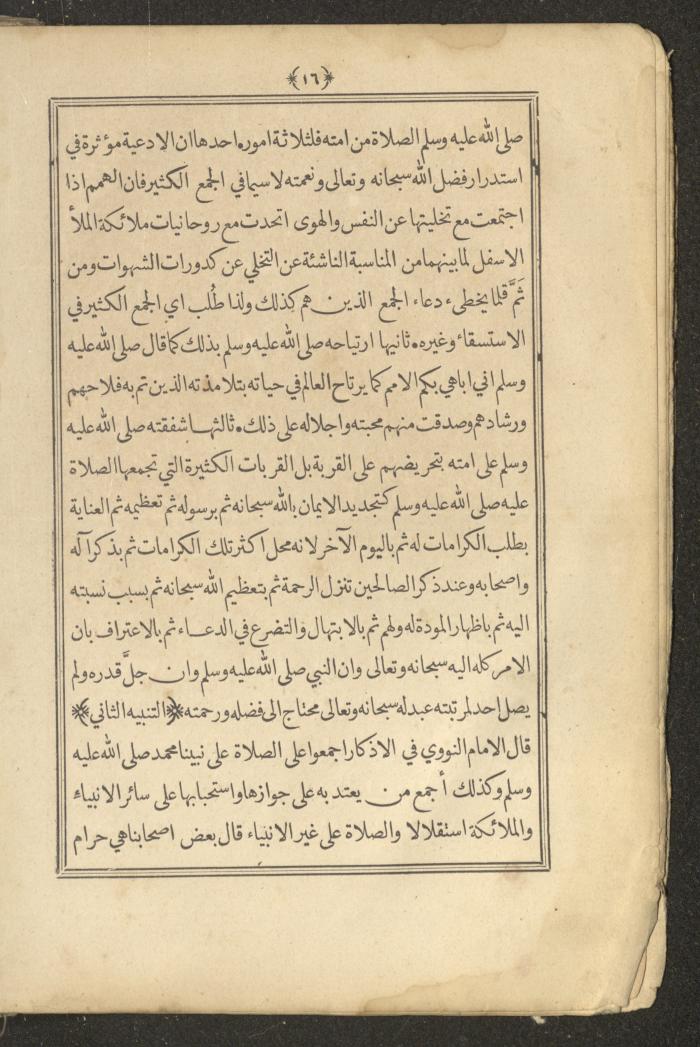 ﴿١٦﴾
صلى الله عليه وسلم الصلاة من امته فلثلاثة امور. احدها ان الادعية مؤثرة في
استدرار فضل الله سبحانه وتعالى ونعمته لاسيما في الجمع الكثير فان الهمم اذا
اجتمعت مع تخليتها عن النفس والهوى اتحدت مع روحانيات ملائكة الملأ
الاسفل لما بينهما من المناسبة الناشئة عن التخلي عن كدورات الشهوات ومن
ثَمَّ قلما يخطىء دعاء الجمع الذين هم كذلك ولذا طُلب اي الجمع الكثير في
الاستسقاء وغيره. ثانيها ارتياحه صلى الله عليه وسلم بذلك كما قال صلى الله عليه
وسلم اني اباهي بكم الامم كما يرتاح العالم في حياته بتلامذته الذين تم به فلاحهم
ورشادهم وصدقت منهم محبته واجلاله على ذلك. ثالثها شفقته صلى الله عليه
وسلم على امته بتحريضهم على القربة بل القربات الكثيرة التي تجمعها الصلاة
عليه صلى الله عليه وسلم كتجديد الايمان بالله سبحانه ثم برسوله ثم تعظيمه ثم العناية
بطلب الكرامات له ثم باليوم الآخر لانه محل اكثر تلك الكرامات ثم بذكر آله
واصحابه وعند ذكر الصالحين تنزل الرحمة ثم بتعظيم الله سبحانه ثم بسبب نسبته
اليه ثم باظهار المودة له ولهم ثم بالابتهال والتضرع في الدعاء ثم بالاعتراف بان
الامر كله اليه سبحانه وتعالى وان النبي صلى الله عليه وسلم وان جلَّ قدره ولم
يصل احد لمرتبته عبد له سبحانه وتعالى محتاج الى فضله ورحمته ﴿التنبيه الثاني﴾
قال الامام النووي في الاذكار اجمعوا على الصلاة على نبينا محمد صلى الله عليه
وسلم وكذلك أجمع من يعتد به على جوازها واستحبابها على سائر الانبياء
والملائكة استقلالا والصلاة على غير الانبياء قال بعض اصحابنا هي حرام